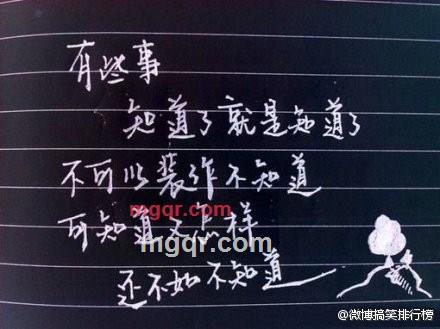 有些事
知道了就是知道了
不可以装作不知道
mgqr.com
可知道又怎样
mgqr.com
还不如不知道
@微博搞笑排行榜